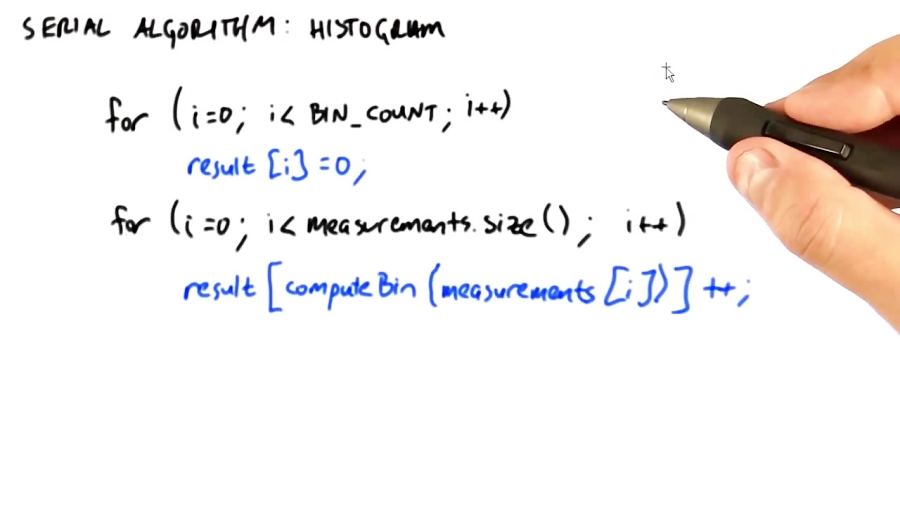 SERIAL ALGORITHM: HISTOGRAM
for (i=0; i< BIN_COUNT; i++)
result [i] =0;
for (i=0; i< measurements.size(); i++)
result [computeBin (measurements [i])] ++;